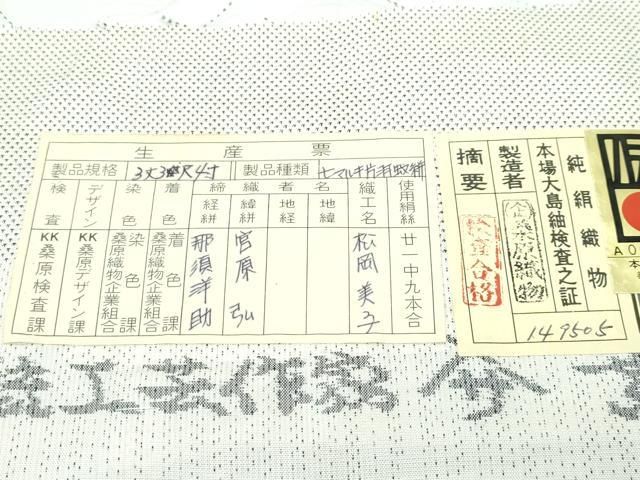 生産票
製品規格 3丈3尺4寸 製品種類 七マルキ片
検査 KK桑原検査課
デザイン KK桑原デザイン課
染色 染色課 桑原織物企業組合
着色 着色課 桑原織物企業組合
締織者名
経絣 那須洋助
緯絣 宮原弘
地経
地緯
織工名 松岡美子
使用絹絲 廿一中九本合
純絹織物
本場大島紬検査之証
製造者
摘要 合格
149505
工芸作家
A0
本